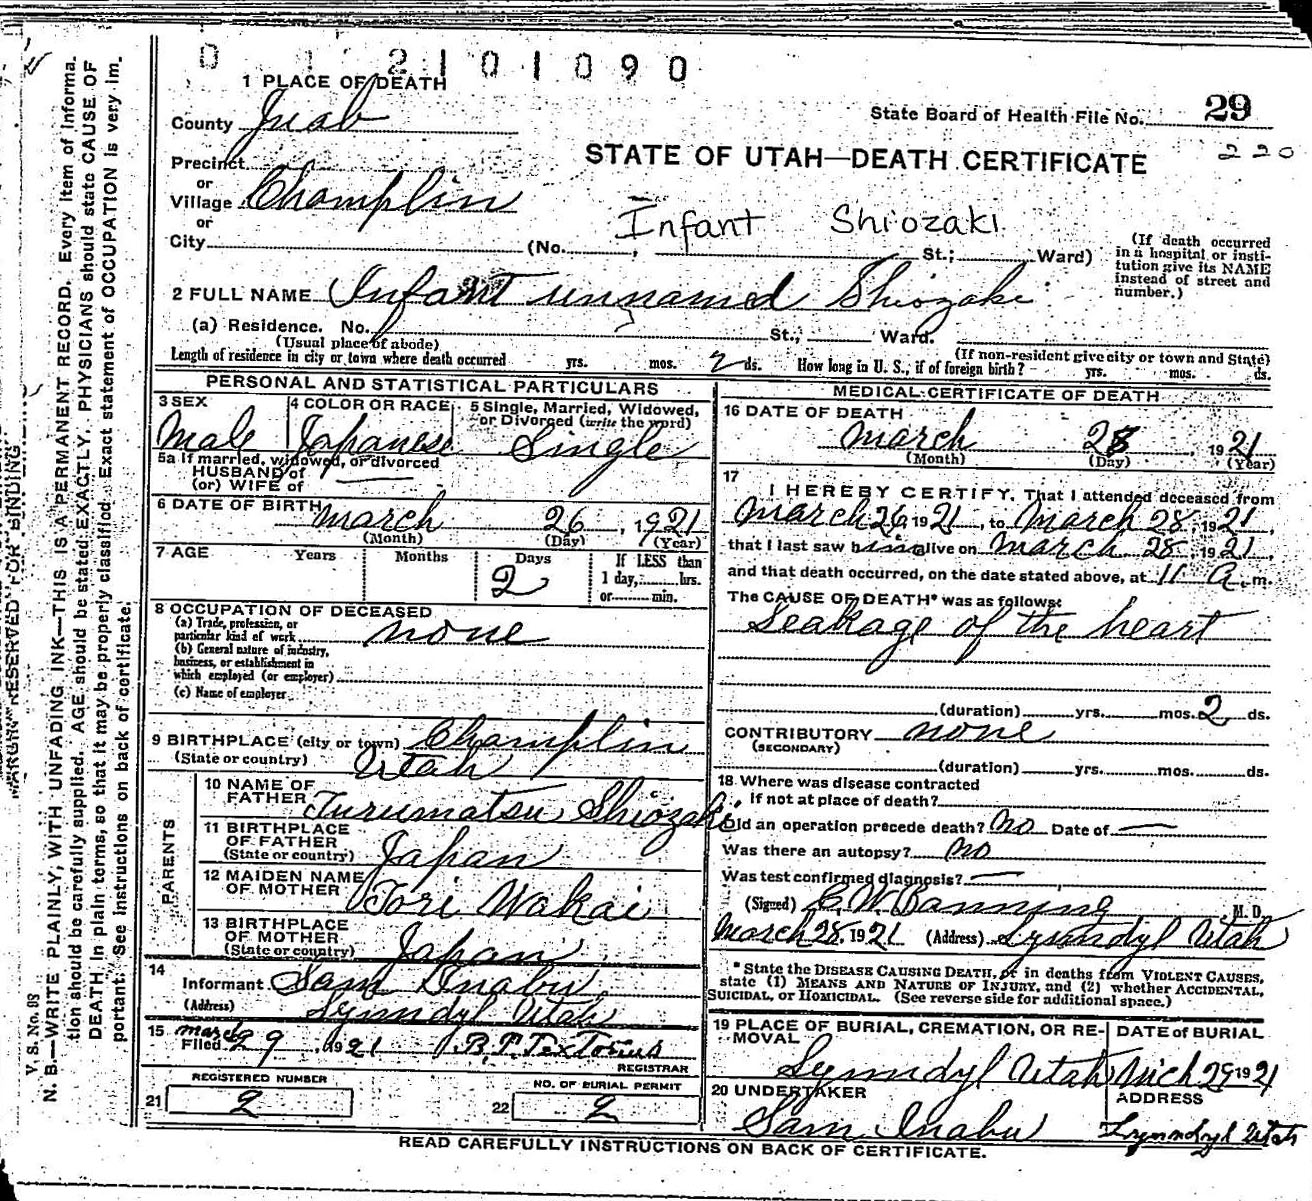 0 1 2101090
1 PLACE OF DEATH
County Juab
State Board of Health File No. 29
220
STATE OF UTAH—DEATH CERTIFICATE
Precinct
or
Village Champlin
or
City (No. , St.; Ward)
Infant Shiozaki
(If death occurred in a hospital or institution give its NAME instead of street and number.)
2 FULL NAME Infant unnamed Shiozaki
(a) Residence. No. St.; Ward.
(Usual place of abode) (If non-resident give city or town and State)
Length of residence in city or town where death occurred yrs. mos. 2 ds. How long in U. S., if of foreign birth? yrs. mos. ds.
PERSONAL AND STATISTICAL PARTICULARS
3 SEX Male
4 COLOR OR RACE Japanese
5 Single, Married, Widowed, or Divorced (write the word) Single
5a If married, widowed, or divorced
HUSBAND of
(or) WIFE of —
6 DATE OF BIRTH March 26, 1921
(Month) (Day) (Year)
7 AGE Years Months Days 2 If LESS than 1 day, hrs. or min.
8 OCCUPATION OF DECEASED
(a) Trade, profession, or particular kind of work none
(b) General nature of industry, business, or establishment in which employed (or employer)
(c) Name of employer
9 BIRTHPLACE (city or town) Champlin
(State or country) Utah
PARENTS
10 NAME OF FATHER Turumatsu Shiozaki
11 BIRTHPLACE OF FATHER (State or country) Japan
12 MAIDEN NAME OF MOTHER Tori Wakai
13 BIRTHPLACE OF MOTHER (State or country) Japan
14 Informant Sam Inabu
(Address) Lynndyl Utah
15 Filed March 29, 1921
REGISTRAR
REGISTERED NUMBER
21 2
NO. OF BURIAL PERMIT
22 2
MEDICAL CERTIFICATE OF DEATH
16 DATE OF DEATH
March 28, 1921
(Month) (Day) (Year)
17 I HEREBY CERTIFY, That I attended deceased from
March 26, 1921, to March 28, 1921,
that I last saw him alive on March 28, 1921
and that death occurred, on the date stated above, at 11 A. m.
The CAUSE OF DEATH* was as follows:
Leakage of the heart
(duration) yrs. mos. 2 ds.
CONTRIBUTORY none
(SECONDARY)
(duration) yrs. mos. ds.
18. Where was disease contracted
if not at place of death?
Did an operation precede death? No Date of —
Was there an autopsy? no
Was test confirmed diagnosis? —
(Signed) E. W. Banning M. D.
March 28, 1921 (Address) Lynndyl Utah
*State the DISEASE CAUSING DEATH, or in deaths from VIOLENT CAUSES, state (1) MEANS AND NATURE OF INJURY, and (2) whether ACCIDENTAL, SUICIDAL, or HOMICIDAL. (See reverse side for additional space.)
19 PLACE OF BURIAL, CREMATION, OR REMOVAL Lynndyl Utah
DATE of BURIAL Mch 29 1921
20 UNDERTAKER Sam Inabu
ADDRESS Lynndyl Utah
READ CAREFULLY INSTRUCTIONS ON BACK OF CERTIFICATE.
V. S. No. 88
MARGIN RESERVED FOR BINDING
N. B.—WRITE PLAINLY, WITH UNFADING INK—THIS IS A PERMANENT RECORD. Every item of information should be carefully supplied. AGE should be stated EXACTLY. PHYSICIANS should state CAUSE OF DEATH in plain terms, so that it may be properly classified. Exact statement of OCCUPATION is very important. See instructions on back of certificate.